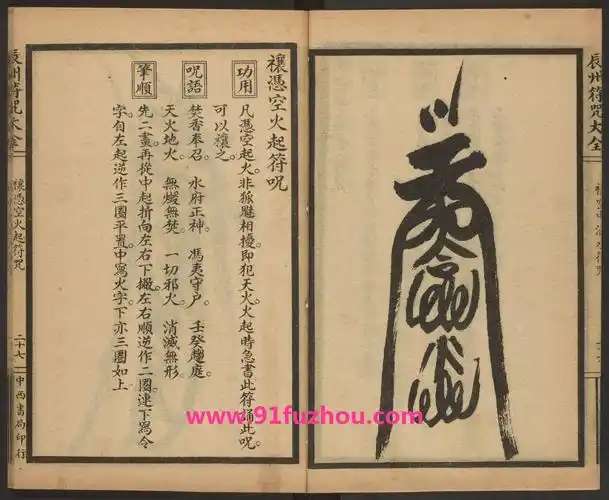 辰州符咒大全
禳憑空火起符咒
功用
凡憑空起火。非狐魅相擾。即犯天火。火起時急書此符。誦此咒。
可以禳之。
咒語
焚香奉召。 水府正神 馮夷守戶。 壬癸趨庭。
天火地火。 無燬無焚。 一切邪火。 消滅無形。
筆順
先二畫。再從中起折向左右下撇。左右順逆作二圈。連下寫令
字。自左起逆作三圈平置。中寫火字。下亦三圈如上
辰州符咒大全 禳憑空火起符咒 二十七 中西書局印行
www.91fuzhou.com